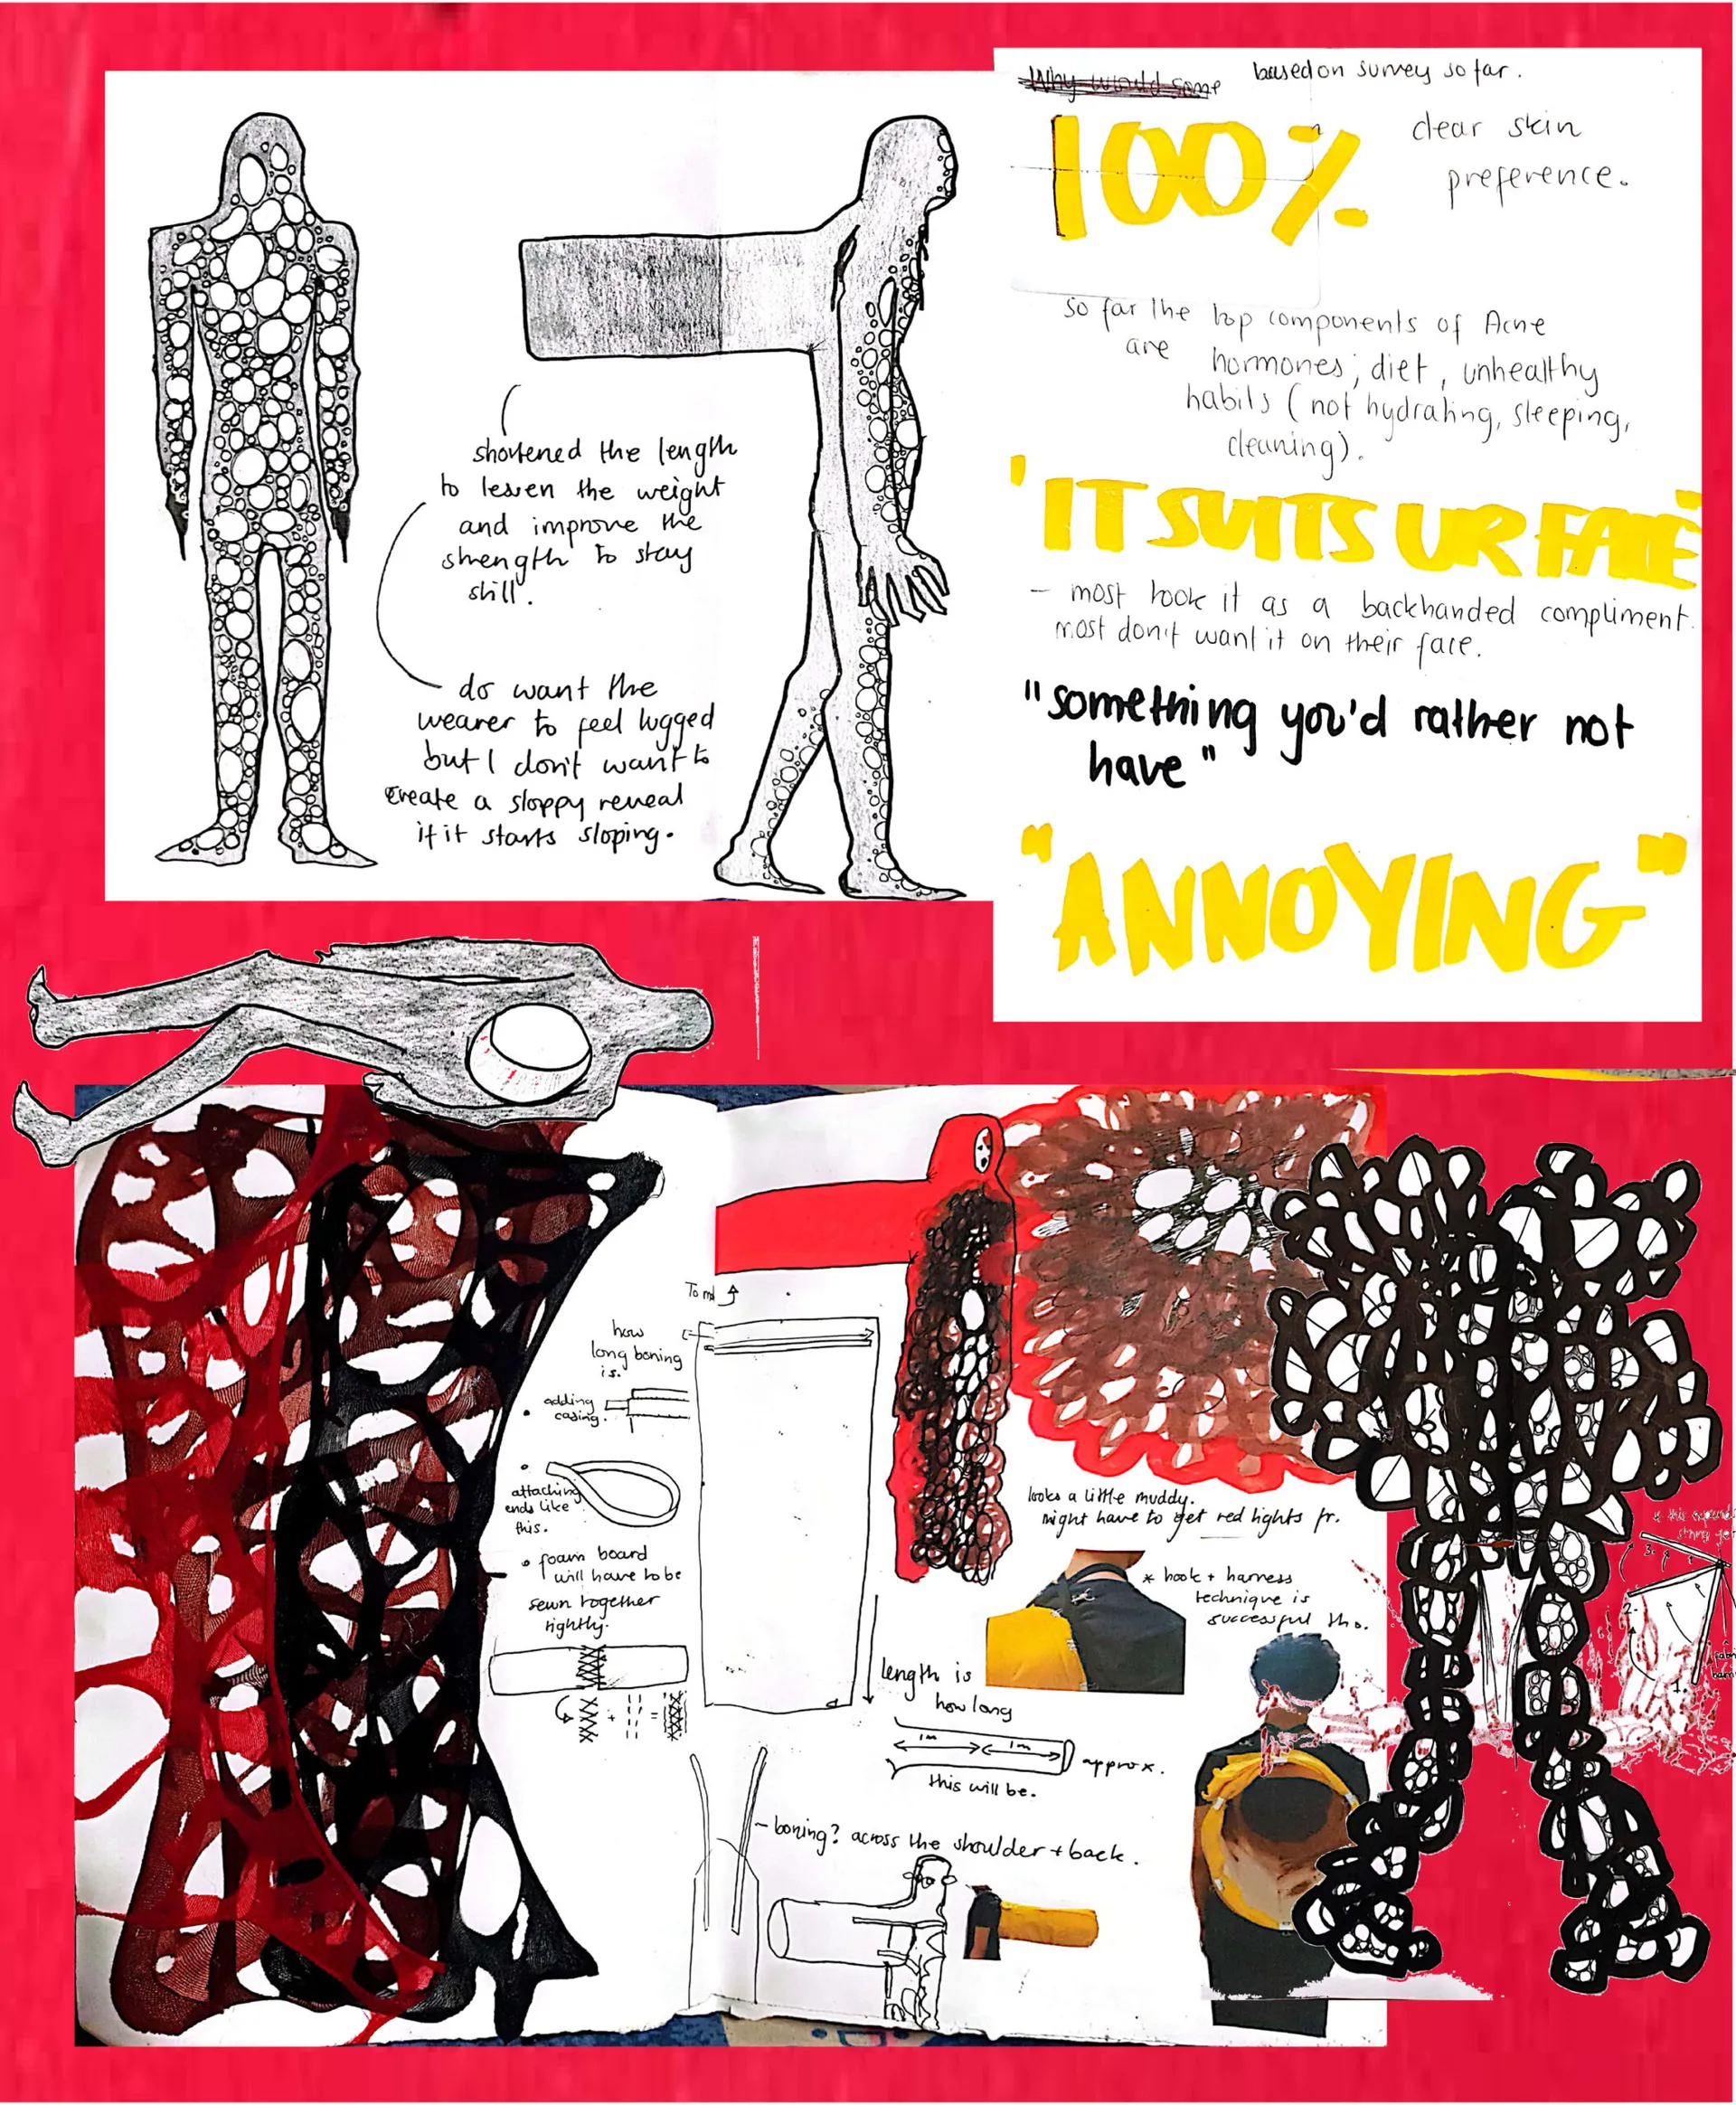 shortened the length
to lessen the weight
and improve the
strength to stay
still.
do want the
wearer to feel lugged
but I don't want to
create a sloppy reveal
if it starts sloping.
Why would some
based on survey so far.
100%
clear skin
preference.
so far the top components of Acne
are hormones; diet, unhealthy
habits (not hydrating, sleeping,
cleaning).
'IT SUITS UR FACE'
- most took it as a backhanded compliment.
most don't want it on their face.
"something you'd rather not
have"
"ANNOYING"
how
long boning
is.
adding
casing.
attaching
ends like
this.
foam board
will have to be
sewn together
tightly.
looks a little muddy.
might have to get red lights fr.
* hook + harness
technique is
successful tho.
length is
how long
1m 1m
approx.
this will be.
- boning? across the shoulder + back.
3.
2.
1.